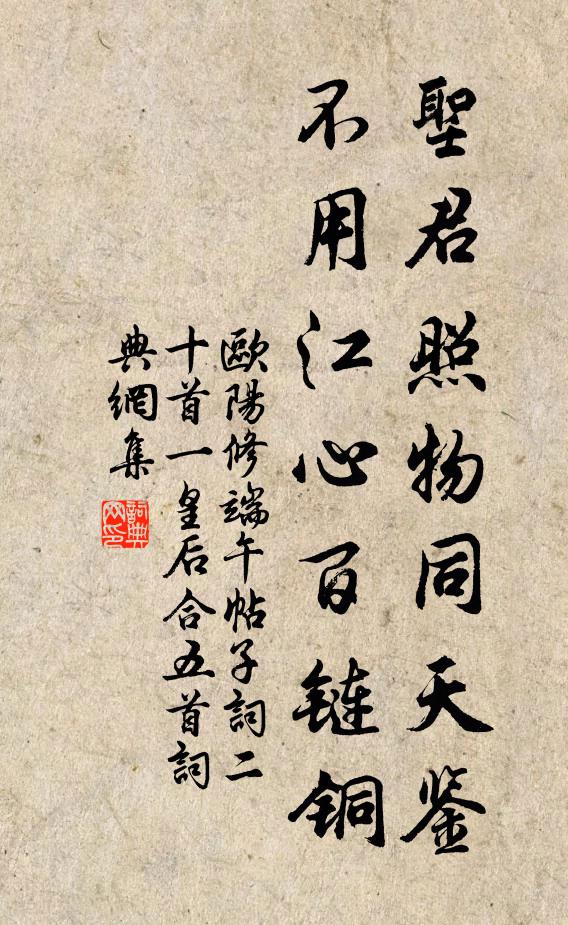 聖君照物同天鉴
不用江心百鏈銅
歐陽修端午帖子詞二
十首一皇后合五首詞
典網集
詞典網印